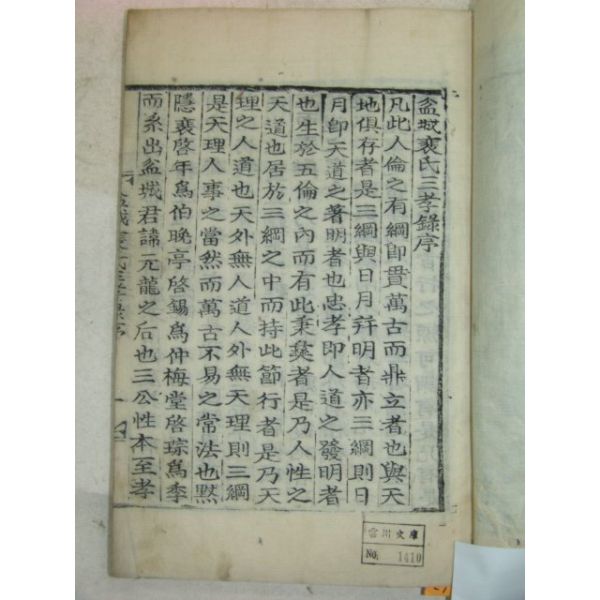 盆城裵氏三孝錄序
凡此人倫之有綱卽貫萬古而鼎立者也與天
地俱存者是三綱與日月幷明者亦三綱則日
月卽天道之著明者也忠孝卽人道之發明者
也生於五倫之內而有此秉彝者是乃人性之
天道也居於三綱之中而持此節行者是乃天
理之人道也天外無人道人外無天理則三綱
是天理人事之當然而萬古不易之常法也黙
隱裵啓年爲伯晩亭啓錫爲仲梅堂啓琮爲季
而系出盆城君諱元龍之后也三公性本至孝
盆城裵氏三孝錄序
一
文庫
No. 1410